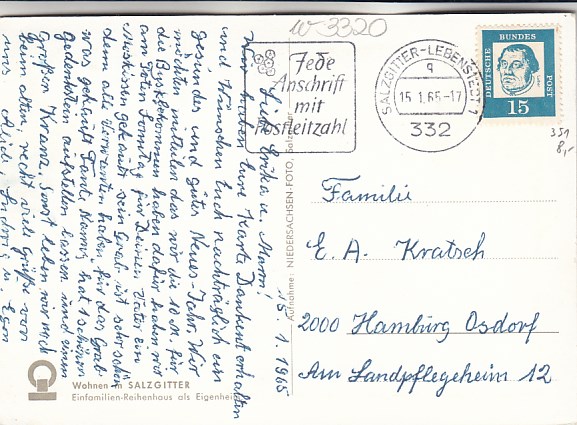 w-3320
Jede
Anschrift
mit
Postleitzahl
SALZGITTER-LEBENSTEDT 1
q
15.1.65-17
332
DEUTSCHE BUNDES POST
15
351
8,-
15. 1. 1965
Liebe Erika u. Mann!
Wir haben Eure Karte Dankend erhalten
und wünschen Euch nachträglich ein
gesundes und gutes Neues-Jahr. Wir
möchten mitteilen das wir die 10 M. für
die Busbekommen haben dafür haben wir
am Toten Sonntag für Deinen Vater ein
gekauft sein Grab ist sehr schön
dem alle haben für das Grab
was gekauft Tante Nanni hat 1 schönen
Gedenkstein aufstellen lassen und einen
Großen Kranz. Sonst leben wir noch
beim alten, recht viel Grüße von
uns Ludwig u. Egon
Familie
E. A. Kratsch
2000 Hamburg Osdorf
Am Landpflegeheim 12
Aufnahme: NIEDERSACHSEN-FOTO, Salzgitter
Wohnen in SALZGITTER
Einfamilien-Reihenhaus als Eigenheim